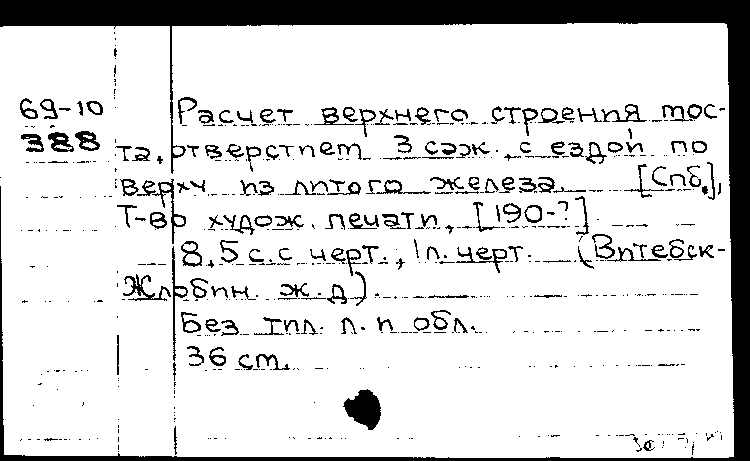 69-10 Расчет верхнего строения мос-
388 та, отверстием 3 саж., с ездой по
верху из литого железа. [Спб.],
Т-во худож. печати, [190-?]
8,5 с. с черт., 1 л. черт. (Витебск-
Жлобин. ж. д).
Без тил. л. и обл.
36 см.